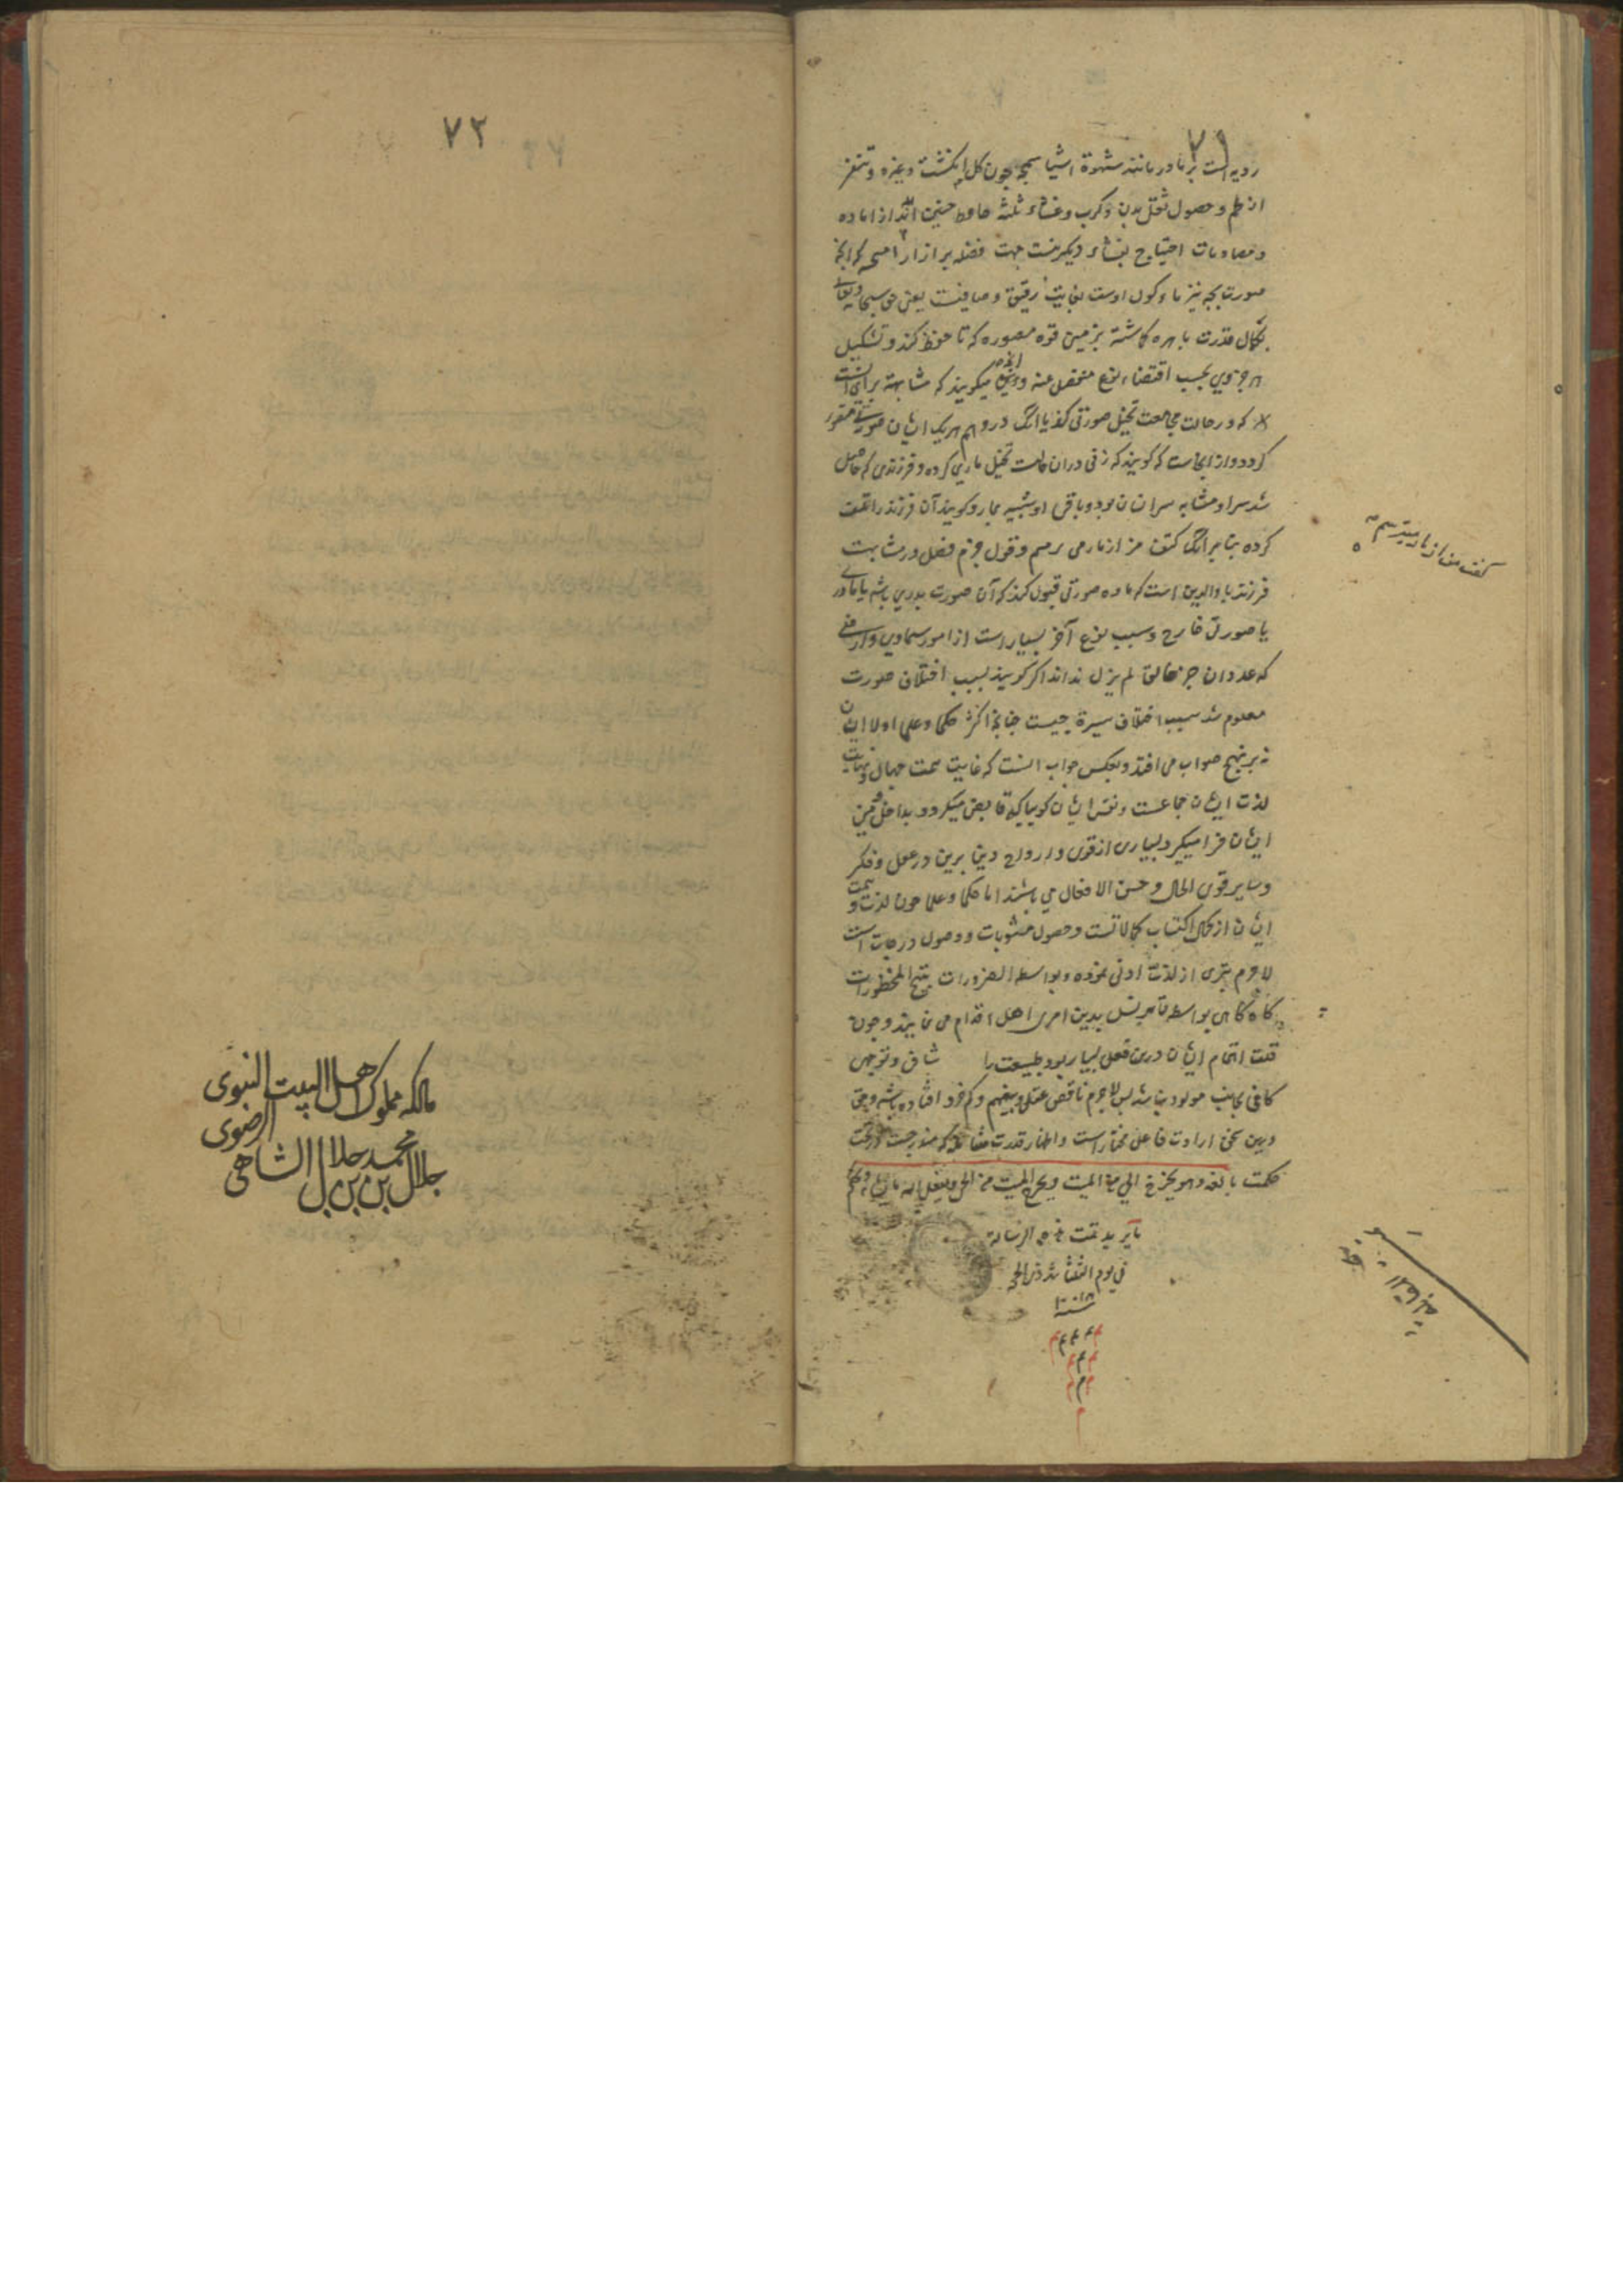 ۷۱
رویه است بر مادر مانند شهوة اشیا سمجه چون کل انکشت و غیره و تنفر
از طعم و حصول ثقل بدن و کرب و غشاء ثلثه حاوط جنین اند از اماده
و مصادمات احتیاج بغشاء دیکر نیست جهت فضله براز از
صورت بچه نیز ماوکول اوست بغایت رقیق و صافیست یعنی حق سبحانه و تعالی
بکمال قدرت باهره کماشته بر زمین قوه مصوره که تا حفظ کند و تشکیل
هر جزوی بحسب اقتضاء نوع منفصل عنه و میکویند که مشابهة برای انست
که در حالت مجامعت تخیل صورتی کند یا انک در وهم هر یک ایشان صورتی متصور
کردد و از اینجاست که کویند که زنی در ان حالت تخیل ماری کرده و فرزندی که حاصل
شد سر او مشابه سر انسان بود و باقی او شبیه بمار و کویند آن فرزند را
کرده بنابر انک کفت من از مار می ترسم و قول جزم و فصل در مشابهت
فرزند با والدین است که ماده صورتی قبول کند که آن صورت پدری باشد یا مادری
یا صورتی خارج و سبب نوع آخر بسیار است از امور سماوی و ارضی
که عدد ان جز خالق لم یزل نداند اکر کویند بسبب اختلاف صورت
معلوم شد سبب اختلاف سیرة چیست چنانچه اکثر حکما و علما اولاد ایشان
نه بر نهج صواب می افتد و بعکس جواب انست که غایت همت جهال و نهایت
لذت ایشان جماعست و نفس ایشان کوییا که قابض میکردد بداخل
ایشان فرا میکیرد بسیاری از قوی و ارواح دین برین در عمل و فکر
و سایر قوی الحال و حسن الافعال می باشند اما حکما و علما چون لذت و همت
ایشان از کمال اکتساب کمالاتست و حصول مثوبات و وصول درجات است
لاجرم تبری از لذت ادنی نموده و بواسطه الضرورات تبیح المحظورات
کاه کاهی بواسطه تاثیر نسل بدین امری اهل اقدام می نمایند و چون
قلت اهتمام ایشان درین فعل بسیار بود طبیعت را شاق و توجهی
کافی بجانب مولود نباشد پس لاجرم ناقص عقل و بیفهم و کم خرد افتاده باشد و حق
درین سخن ارادت فاعل مختار است و اظهار قدرت مندرجست در تحت
حکمت بالغه و هو یخرج الحی من المیت و یخرج المیت من الحی و یفعل الله ما یشاء و یحکم
ما یرید تمت هذه الرسالة
فی یوم الثلثا شهر ذی الحجه
سنه
کفت من از مار میترسم
۷۲
مالکه مملوک اهل البیت النبوی
الرضوی
جلال بن محمد بن جلال الشاهی